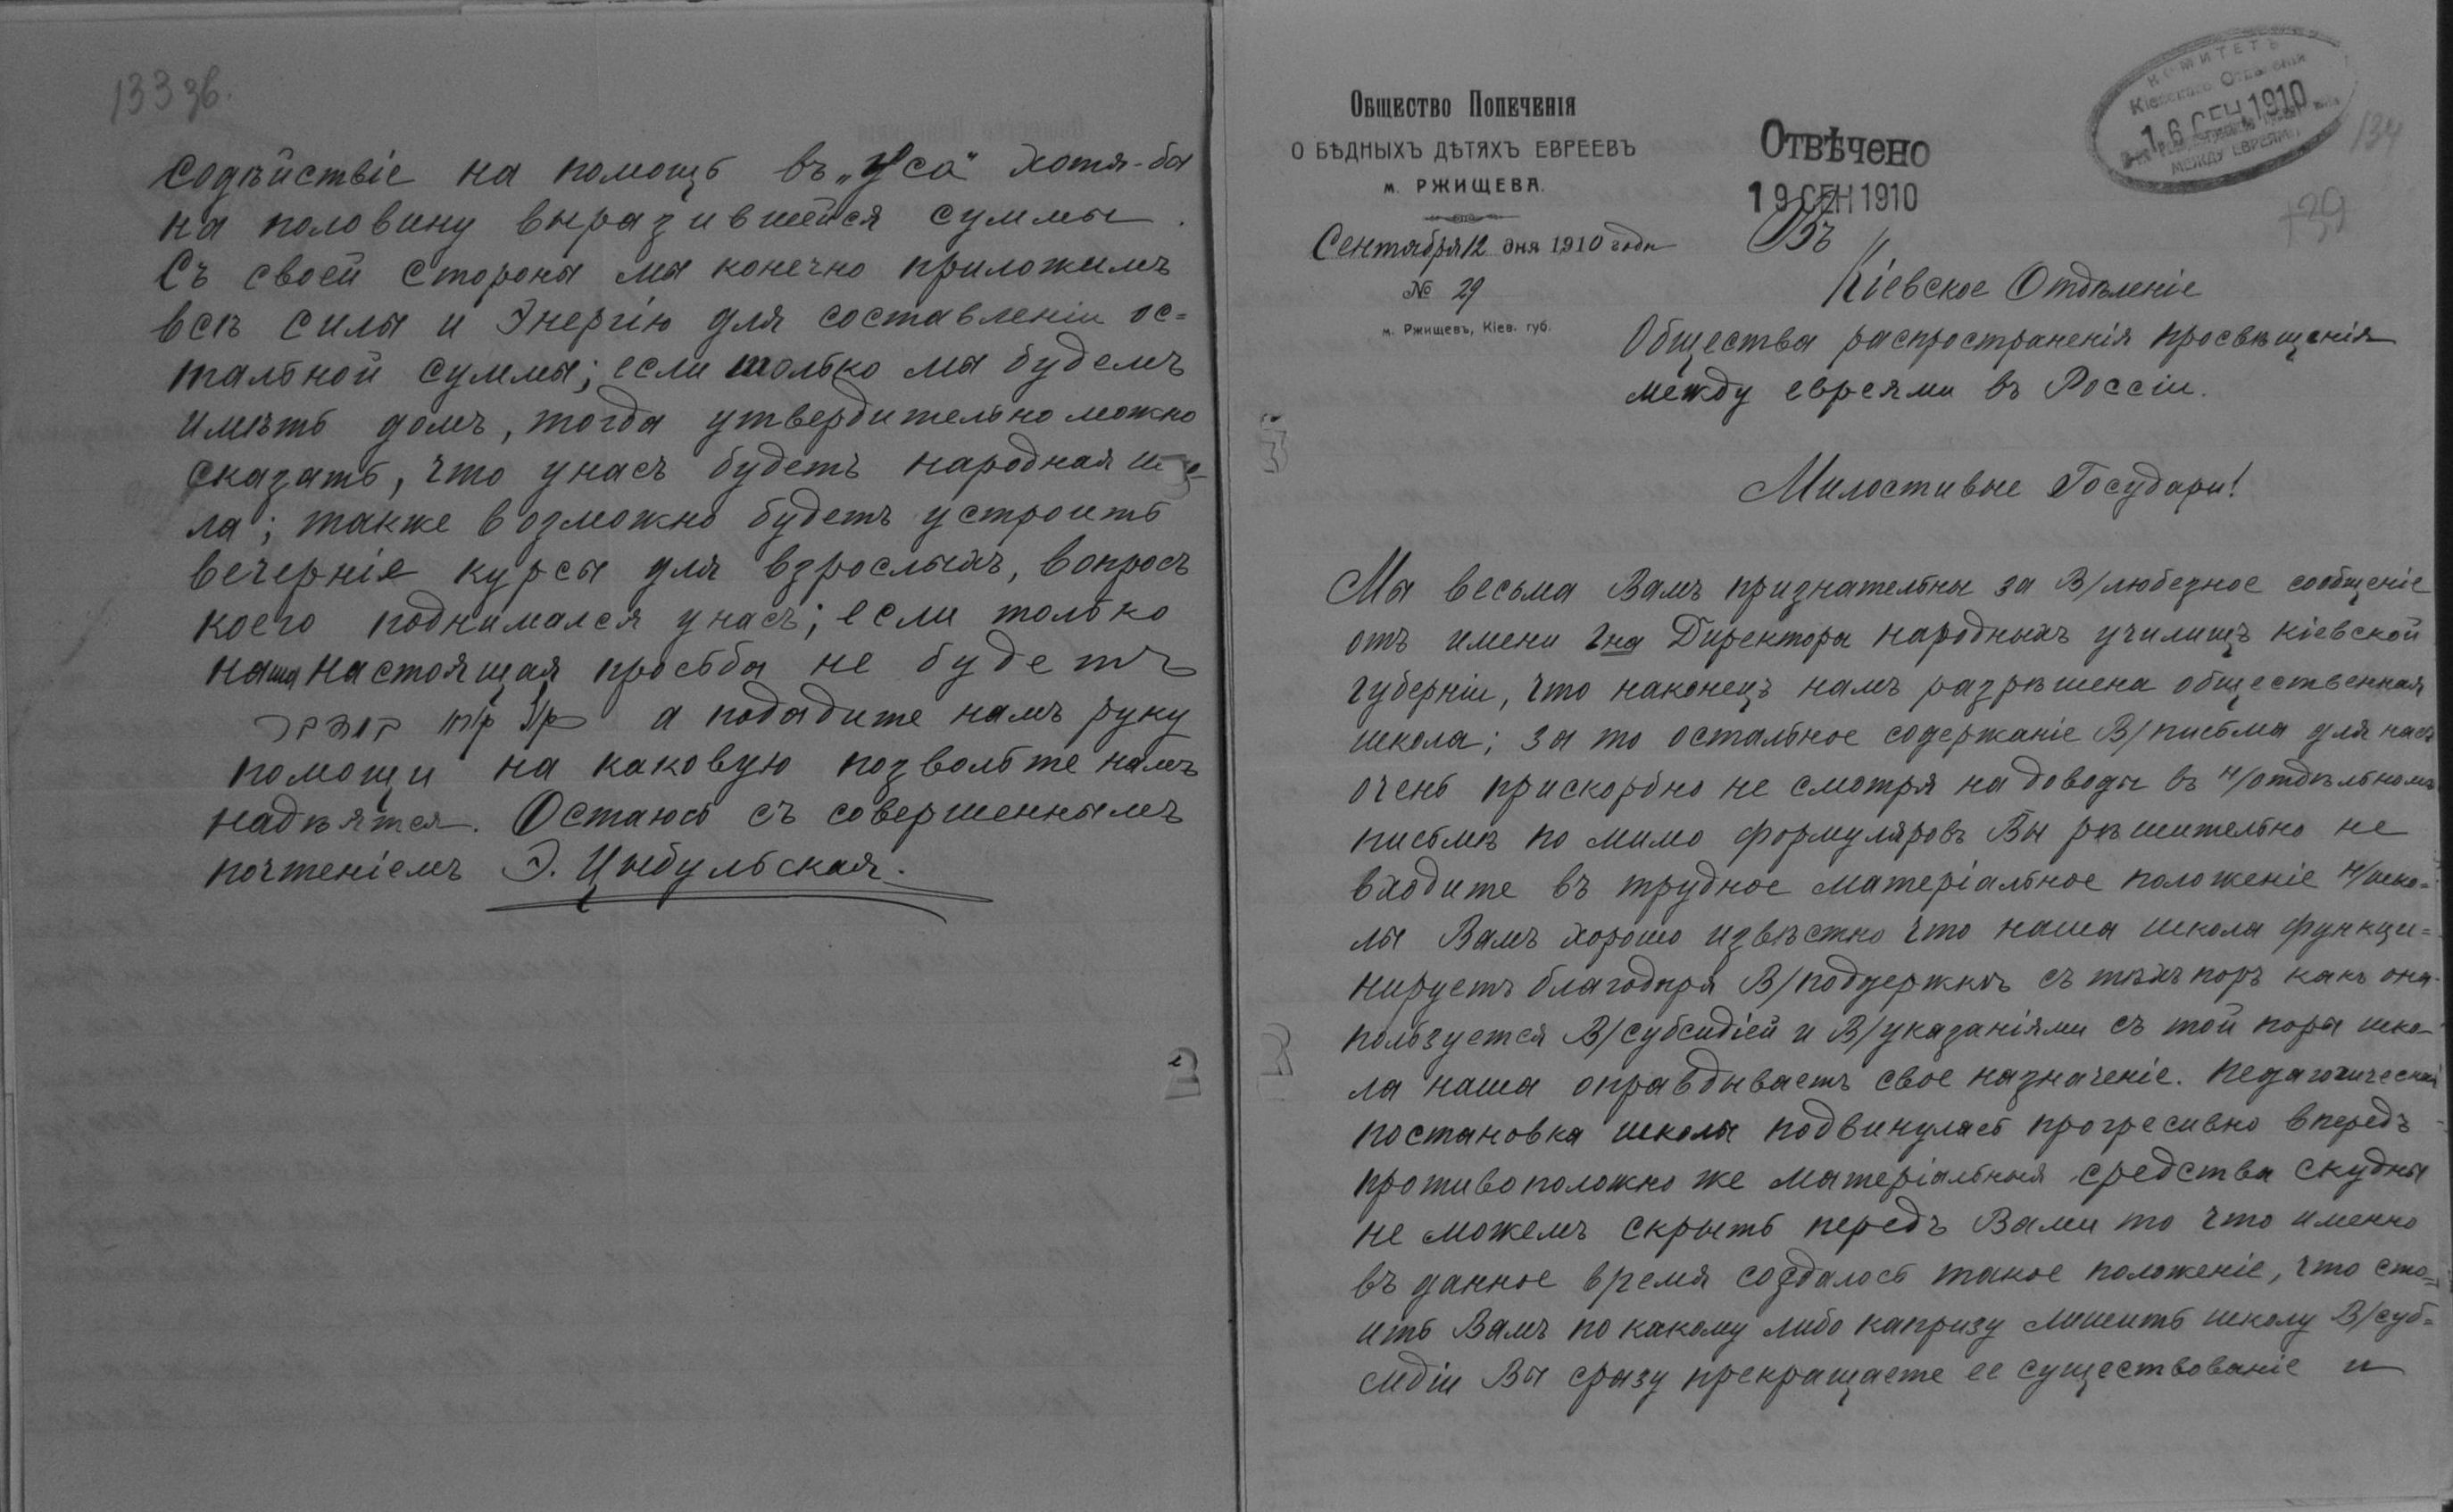 133 зв.
содѣйствіе на помощь въ „Іса“ хотя-бы
на половину выразившейся суммы.
Съ своей стороны мы конечно приложимъ
всѣ силы и Энергію для составленіи ос=
тальной суммы; если только мы будемъ
имѣть домъ, тогда утвердительно можно
сказать, что у насъ будетъ народная
ла; также возможно будетъ устроить
вечернія курсы для взрослыхъ, вопросъ
коего поднимался у насъ; если только
наша настоящая просьба не будетъ
а подадите намъ руку
помощи на каковую позвольте намъ
надѣятся. Остаюсь съ совершеннымъ
почтеніемъ Э. Цыбульская.
Общество Попеченія
О БѢДНЫХЪ ДѢТЯХЪ ЕВРЕЕВЪ
м. РЖИЩЕВА.
Сентября 12 дня 1910 года
№ 29
м. Ржищевъ, Кіев. губ.
Отвѣчено
19 СЕН 1910
КОМИТЕТЪ
Кіевскаго Отдѣленія
16 СЕН 1910
МЕЖДУ ЕВРЕЯМИ
134
139
Въ
Кіевское Отдѣленіе
Общества распространенія просвѣщенія
между евреями въ Россіи.
Милостивые Государи!
Мы весьма Вамъ признательны за В/любезное сообщеніе
отъ имени Гна Директора народныхъ училищъ Кіевской
губерніи, что наконецъ намъ разрѣшена общественная
школа; за то остальное содержаніе В/письма для насъ
очень прискорбно не смотря на доводы въ н/отдѣльномъ
письмѣ по мимо формуляровъ Вы рѣшительно не
входите въ трудное матеріальное положеніе н/шко=
лы Вамъ хорошо извѣстно что наша школа функци=
нируетъ благодаря В/поддержкѣ съ тѣхъ поръ какъ она
пользуется В/субсидіей и В/указаніями съ той поры шко-
ла наша оправдываетъ свое назначеніе. Педагогическая
постановка школы подвинулась прогресивно впередъ
противоположно же матеріальныя средства скудны
не можемъ скрыть передъ Вами то что именно
въ данное время создалось такое положеніе, что сто=
итъ Вамъ по какому либо капризу лишить школу В/суб=
сидіи Вы сразу прекращаете ее существованіе и